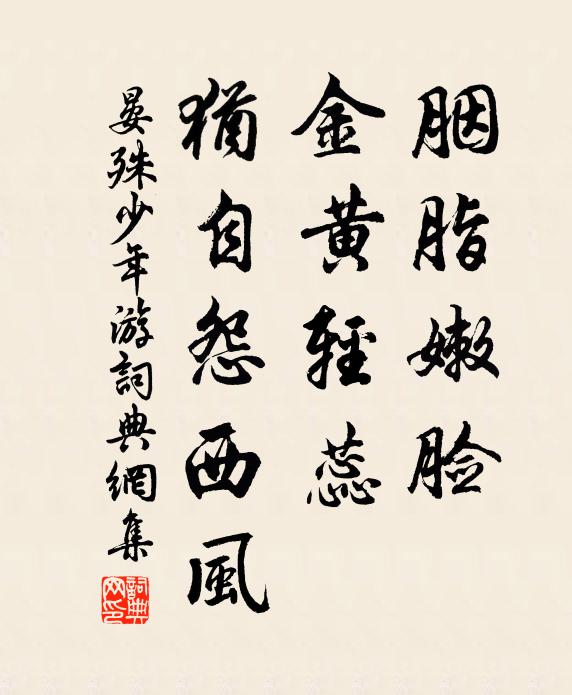 胭脂嫩脸
金黄輕蕊
猶自怨西風
晏殊少年游詞典網集
詞典网印